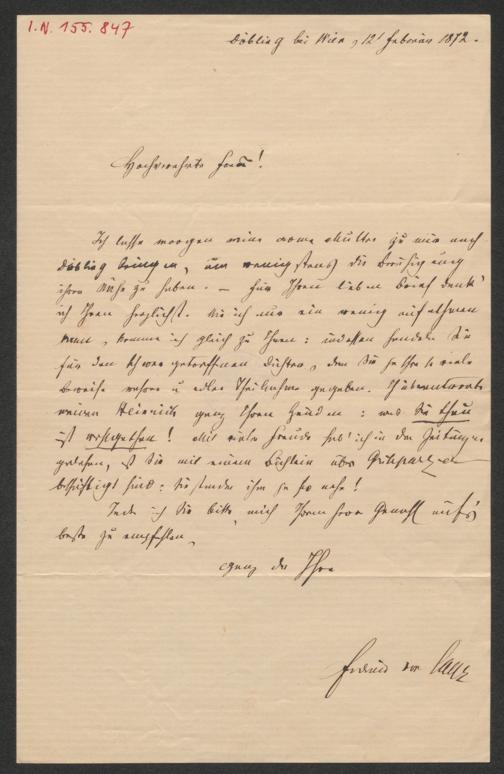 I.N. 155.847
Döbling bei Wien, 12' Februar 1872.
Hochverehrte Frau!
Ich lasse morgen meine arme Mutter zu mir nach
Döbling bringen, um wenigstens die Beruhigung
ihrer Nähe zu haben. – Für Ihren lieben Brief dank'
ich Ihnen herzlichst. Wie ich nur ein wenig aufathmen
kann, komme ich gleich zu Ihnen: indessen handeln Sie
für den schwer getroffenen Dichter, dem Sie ja schon so viele
Beweise wahrer u edler Theilnahme gegeben. Ich überantworte
meinen Heinrich ganz Ihren Händen: was Sie thun
ist wohlgethan! Mit vieler Freude hab' ich in den Zeitungen
gelesen, daß Sie mit einem Büchlein über Grillparzer
beschäftigt sind: Sie standen ihm ja so nahe!
Indem ich Sie bitte, mich Ihrem Herrn Gemahl auf's
beste zu empfehlen,
ganz der Ihre
Ferdinand von Saar